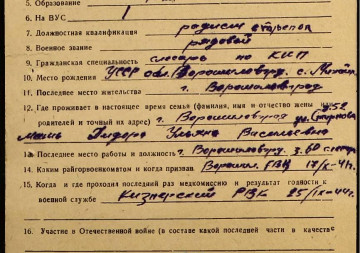 5. Образование
6. На ВУС 1
7. Должностная квалификация радист старшой
8. Военное звание рядовой
9. Гражданская специальность слесарь по КИП
10. Место рождения УССР обл. Ворошиловград. с.
11. Последнее место жительства г. Ворошиловград
12. Где проживает в настоящее время семья (фамилия, имя и отчество жены
родителей и точный их адрес) г. Ворошиловград ул.
Мать Ульяна Васильевна
13. Последнее место работы и должность г. Ворошиловград. з. 60 слесарь
14. Каким райгорвоенкоматом и когда призван Ворошил. ГВК 17/X-41.
15. Когда и где проходил последний раз медкомиссию и результат годности к
военной службе Кизнерский РВК 25/IX-44г.
16. Участие в Отечественной войне (в составе какой последней части в качестве